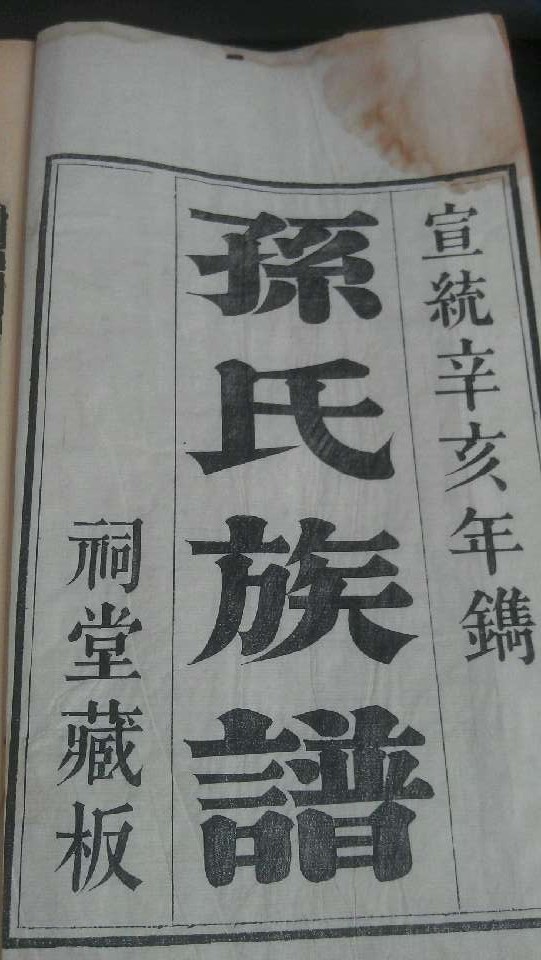 宣統辛亥年鐫
孫氏族譜
祠堂藏板